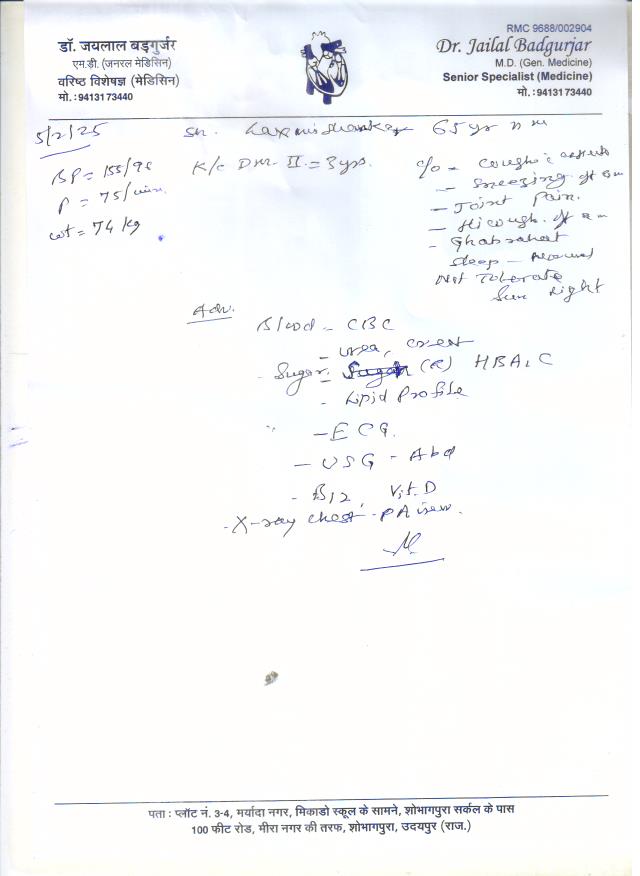 RMC 9688/002904
डॉ. जयलाल बड़गुर्जर
एम.डी. (जनरल मेडिसिन)
वरिष्ठ विशेषज्ञ (मेडिसिन)
मो.:94131 73440
Dr. Jailal Badgurjar
M.D. (Gen. Medicine)
Senior Specialist (Medicine)
मो.:94131 73440
5/2/25
Laxmishankar 65 yr
BP = 155/90
P = 75/min.
wt = 74 kg
K/c DM II = 3 yrs.
c/o - Cough
- Sneezing
- Joint Pain.
- Hicough.
- Ghabrahat
Sleep - Normal
Not Tolerate
Sun Light
Adv.
Blood - CBC
- Urea, Creat
- Sugar. (R) HBA1C
- Lipid Profile
- ECG.
- USG - Abd
- B12, Vit. D
- X-ray Chest - PA view.
पता : प्लॉट नं. 3-4, मर्यादा नगर, मिकाडो स्कूल के सामने, शोभागपुरा सर्कल के पास
100 फीट रोड, मीरा नगर की तरफ, शोभागपुरा, उदयपुर (राज.)